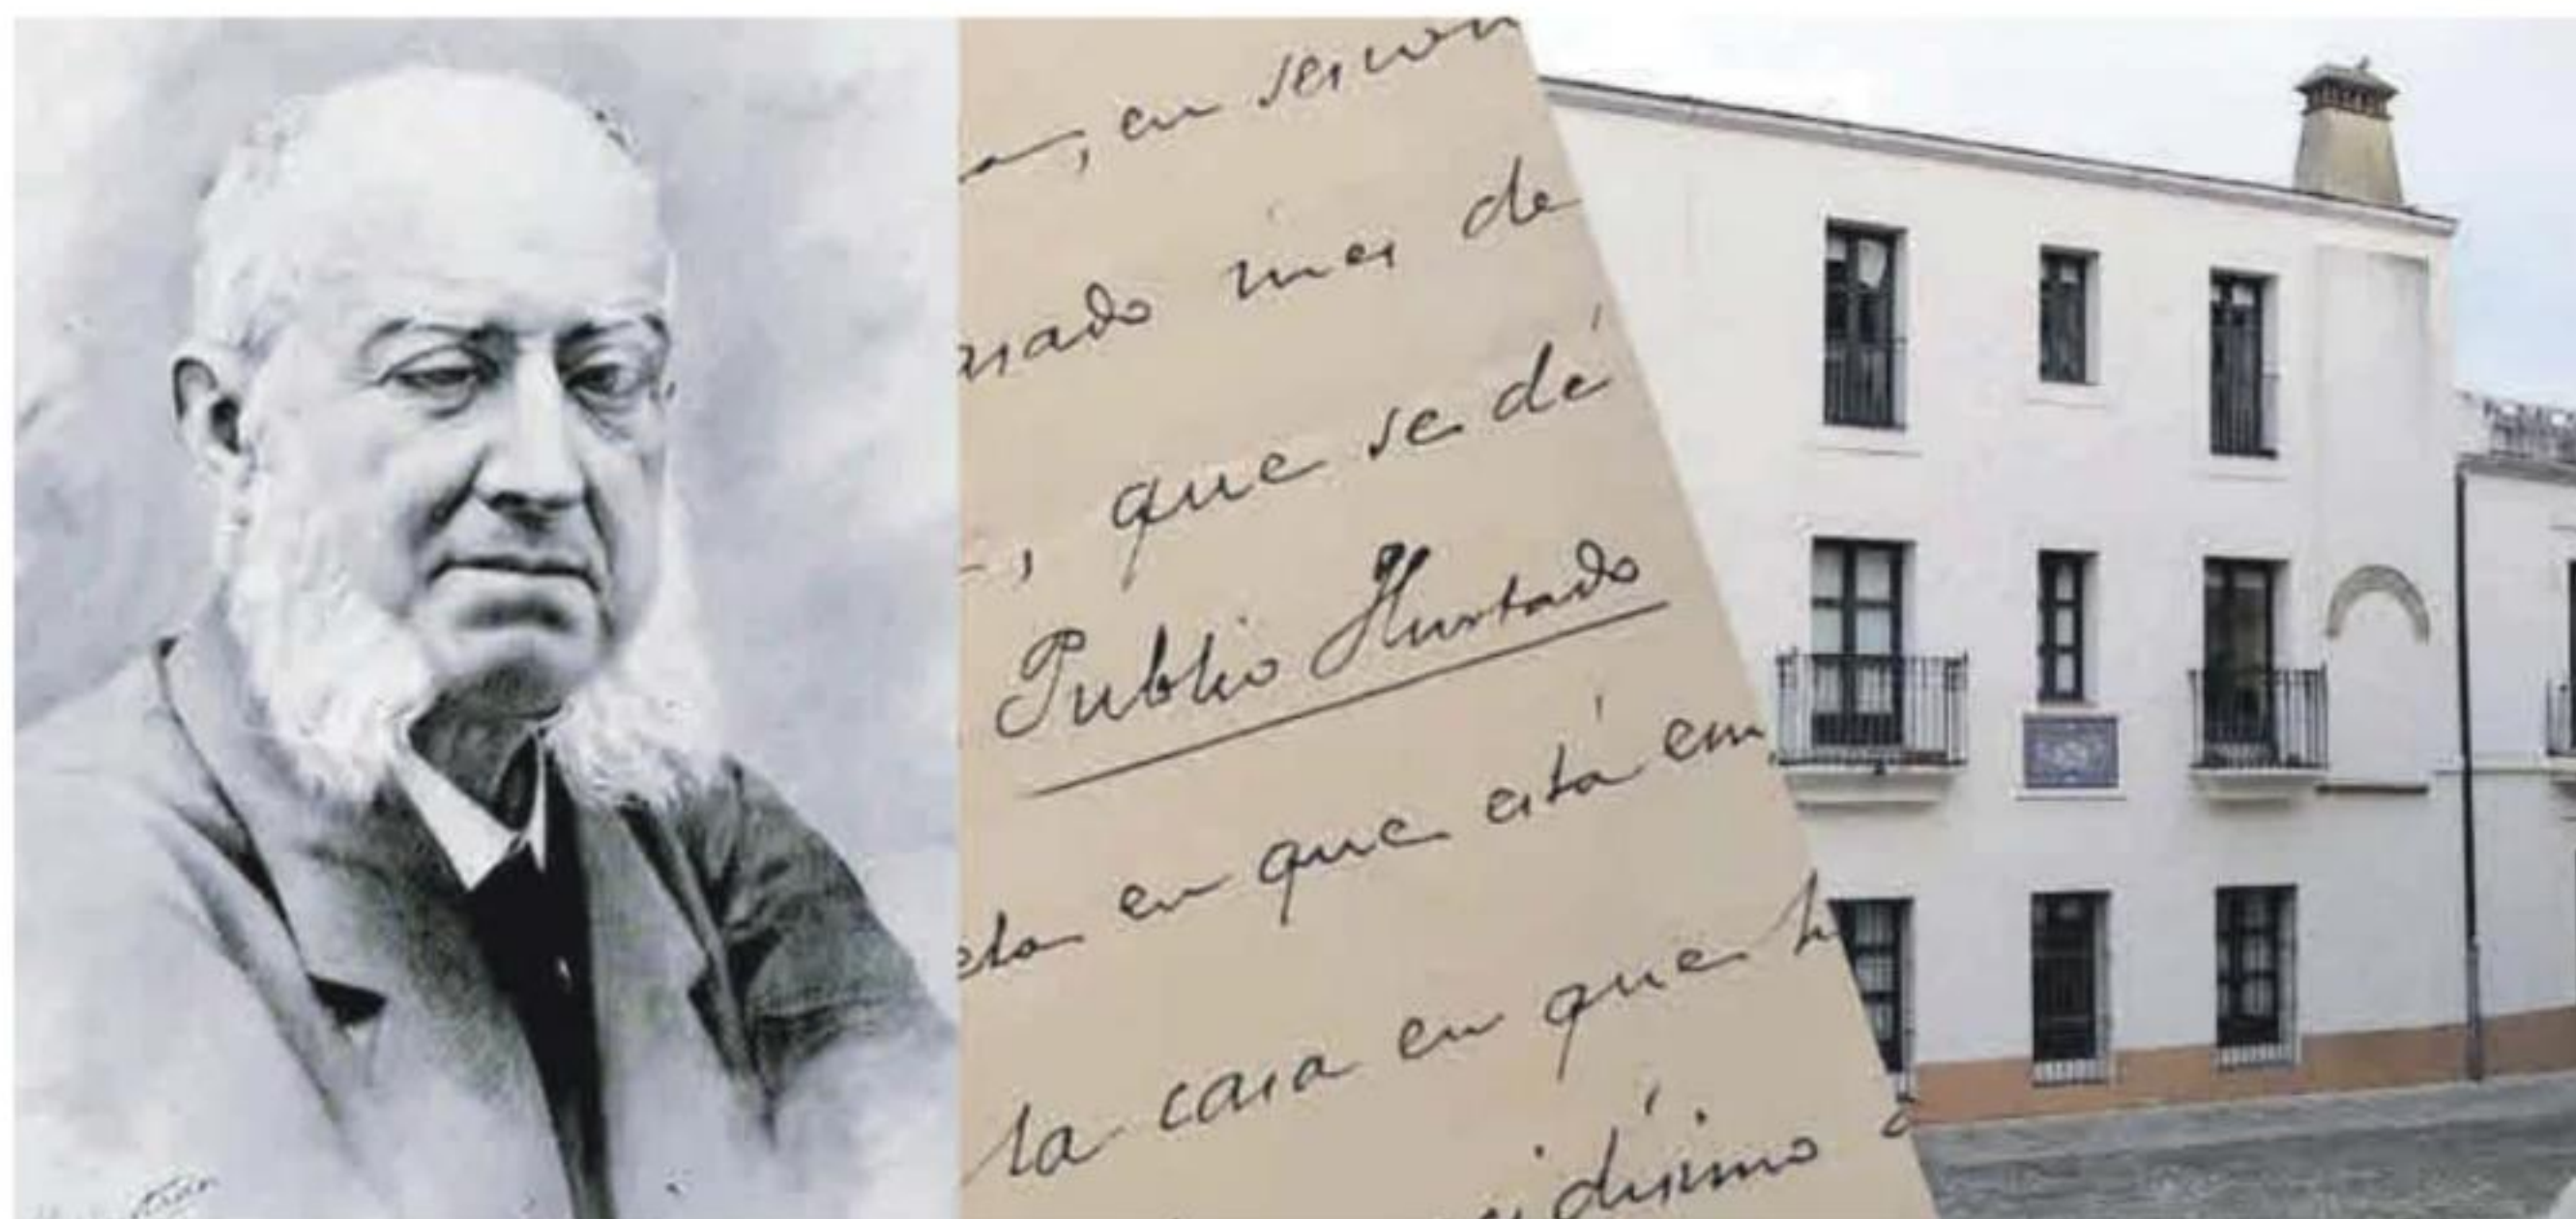 , en sesión
sado mes de
, que se dé
Publio Hurtado
eta en que está em
la casa en que h